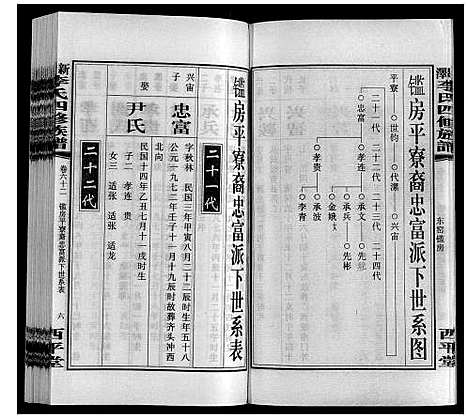 李氏四修族谱
东窑镒房
西平堂
镒房平寮裔忠富派下世系图
二十一代 二十二代 二十三代 二十四代
平寮—○世钧—○代濂—○兴宙
○忠富—○孝连—○承文—○先
○承兵—○先彬
○金娥
○孝贵—○承波
○李青
镒房平寮裔忠富派下世系表
二十一代
兴宙子
忠富
字秋林 民国三年甲寅八月二十三辰时生年五十八
公元一九七二年壬子十一月十九辰时故葬齐头冲西
向
娶
尹氏
民国十四年乙丑七月十一戌时生
子二 孝连 贵
女三 适张 适张 适龙
二十二代
新李氏四修族谱
卷六十二
镒房平寮裔忠富派下世系表
六
西平堂